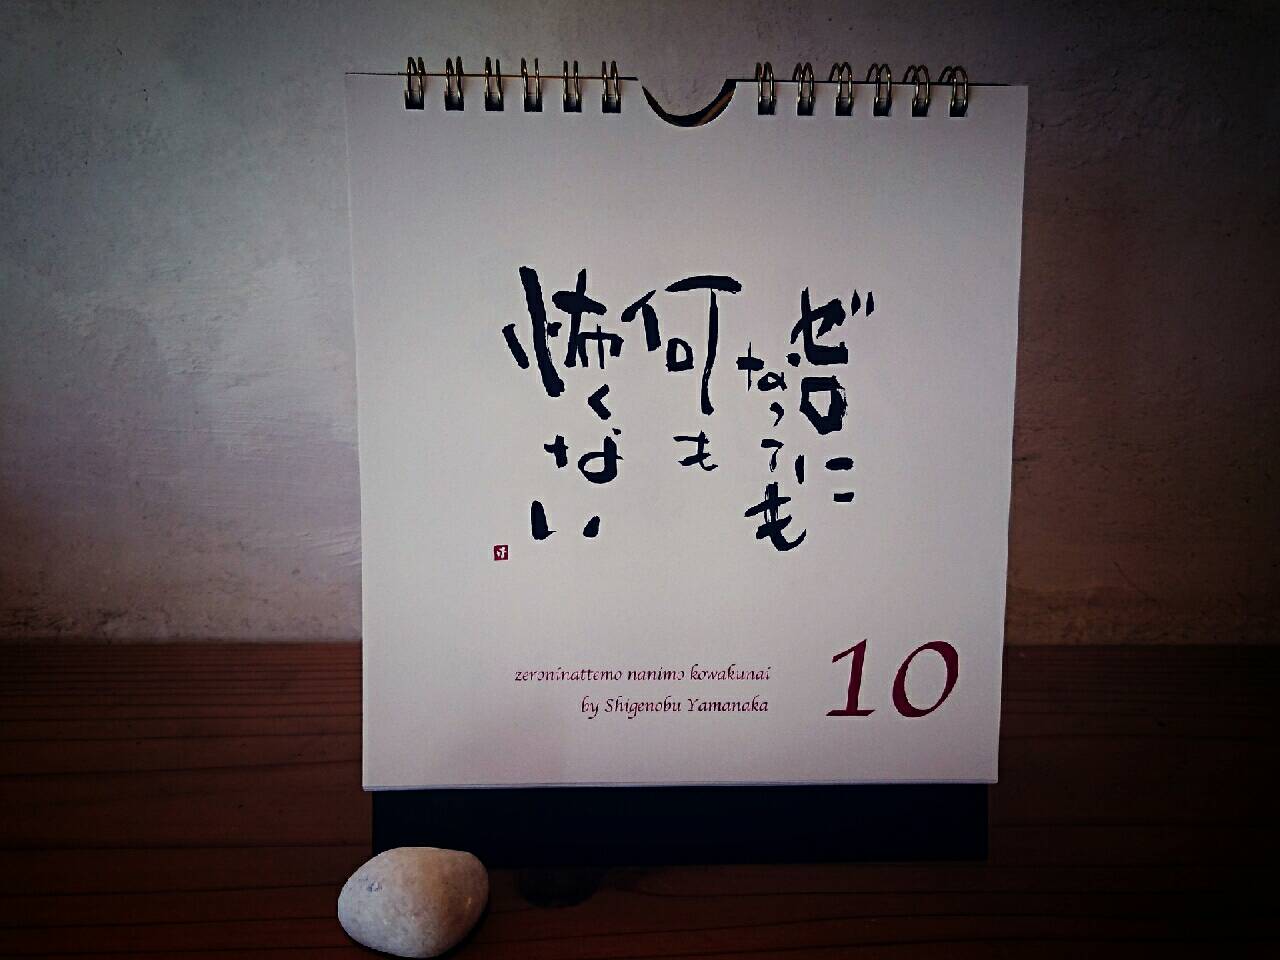 ゼロに
なっても
何も
怖くない
zeroninattemo nanimo kowakunai
by Shigenobu Yamanaka
10